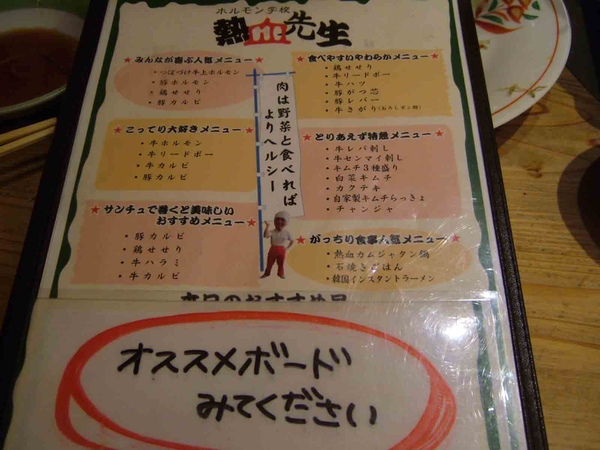 ホルモン学校
熱血先生
みんなが喜ぶ人気メニュー
・つぼづけ牛上ホルモン
・豚ホルモン
・鶏せせり
・豚カルビ
こってり大好きメニュー
・牛ホルモン
・牛リードボー
・牛カルビ
・豚カルビ
サンチュで巻くと美味しい
おすすめメニュー
・豚カルビ
・鶏せせり
・牛ハラミ
・牛カルビ
肉は野菜と食べれば
よりヘルシー
食べやすいやわらかメニュー
・鶏せせり
・牛リードボー
・牛ハツ
・豚がつ芯
・豚レバー
・牛さがり
とりあえず特急メニュー
・牛レバ刺し
・牛センマイ刺し
・キムチ3種盛り
・白菜キムチ
・カクテキ
・自家製キムチらっきょ
・チャンジャ
がっちり食事人気メニュー
・熱血カムジャタン鍋
・石焼きごはん
・韓国インスタントラーメン
本日のおすすめ品
オススメボード
みてください